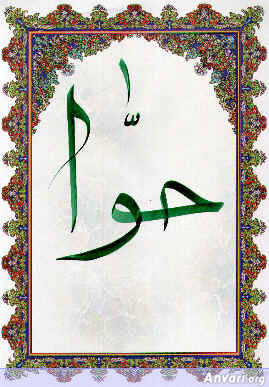 حوّا
Anvari.org